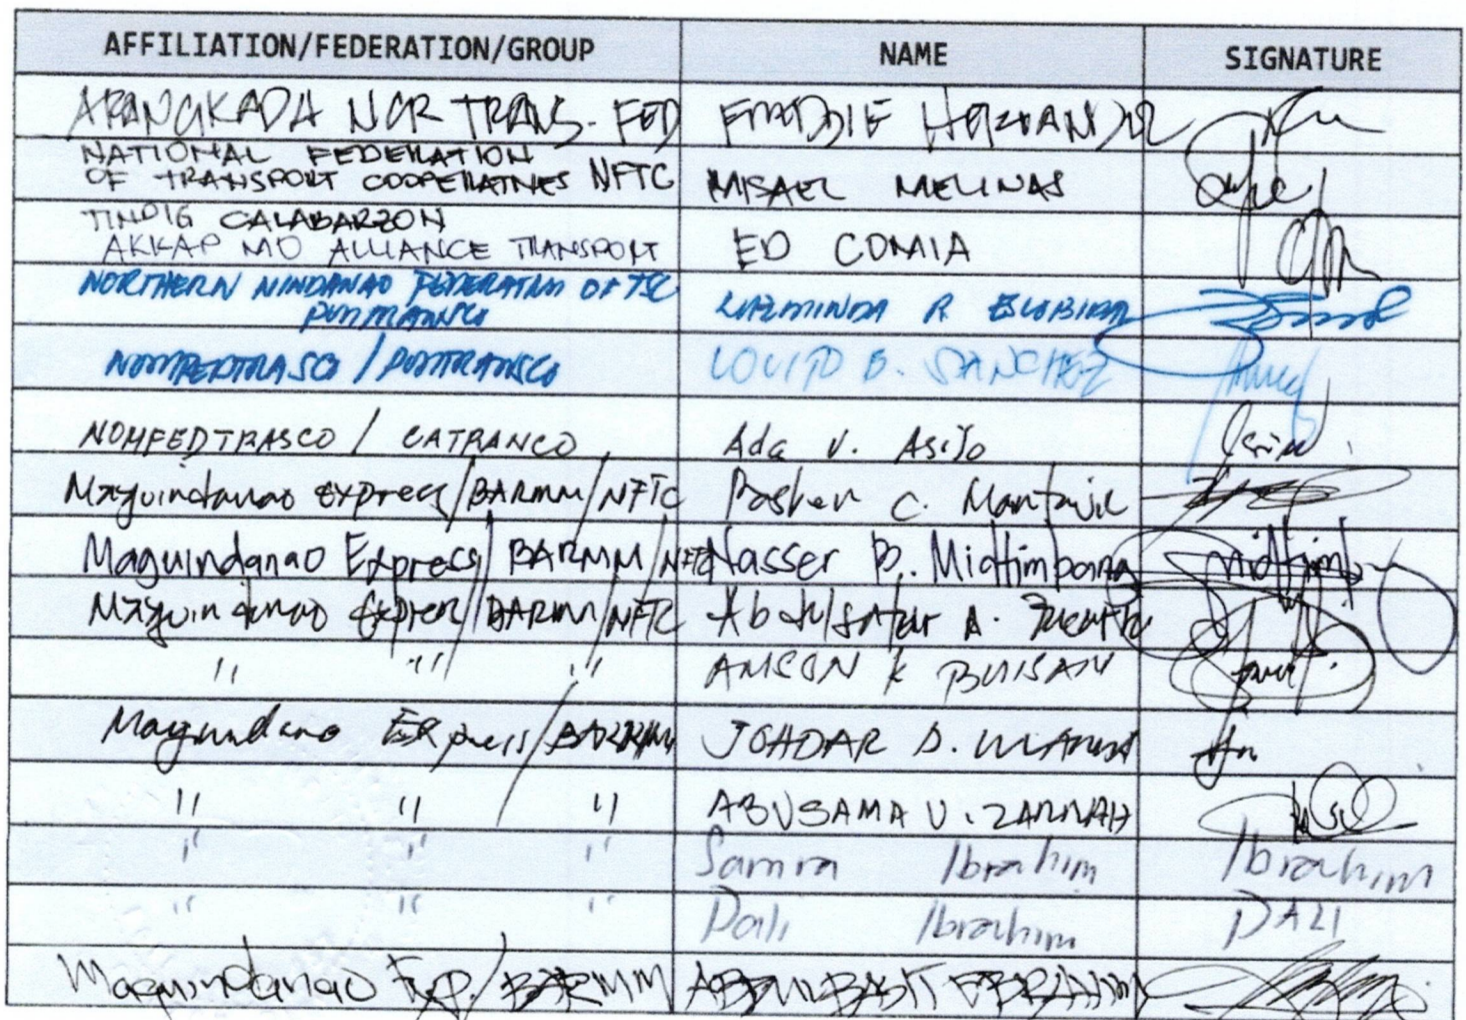 AFFILIATION/FEDERATION/GROUP NAME SIGNATURE
ARANGKADA NCR TRANS. FED FREDDIE HERNANDEZ
NATIONAL FEDERATION
OF TRANSPORT COOPERATIVES NFTC MISAEL MELINAS
TINDIG CALABARZON
AKKAP MO ALLIANCE TRANSPORT ED COMIA
NORTHERN MINDANAO FEDERATION OF TSC
LUZMINDA R ESCOBIDO
NOMFEDTRASCO / LOVITO B. SANCHEZ
NOMFEDTRASCO / CATRANCO Ada V. Asijo
Maguindanao Express/BARMM/NFTC C.
Maguindanao Express/BARMM/NFTC Nasser B. Midtimbang
Maguindanao Express/BARMM/NFTC Abdulsatar A.
" " " AMSON K BUISAN
Maguindano Express/BARMM JOHDAR D.
" " " ABUSAMA U.
" " " Samra Ibrahim Ibrahim
" " " Dali Ibrahim DALI
Maguindanao Exp./BARMM ABDULBASIT EBRAHIM